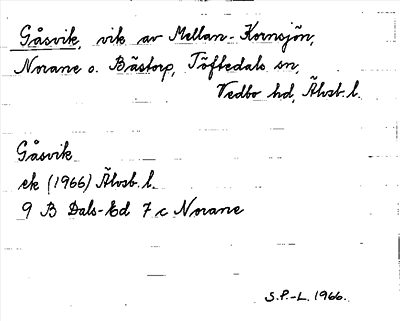 Gåsvik, vik av Mellan-Kornsjön,
Norane o. Bästorp, Töftedals sn,
Vedbo hd, Älvsb. l.
Gåsvik
ek (1966) Älvsb. l.
9 B Dals-Ed 7 c Norane
S.P.-L. 1966.